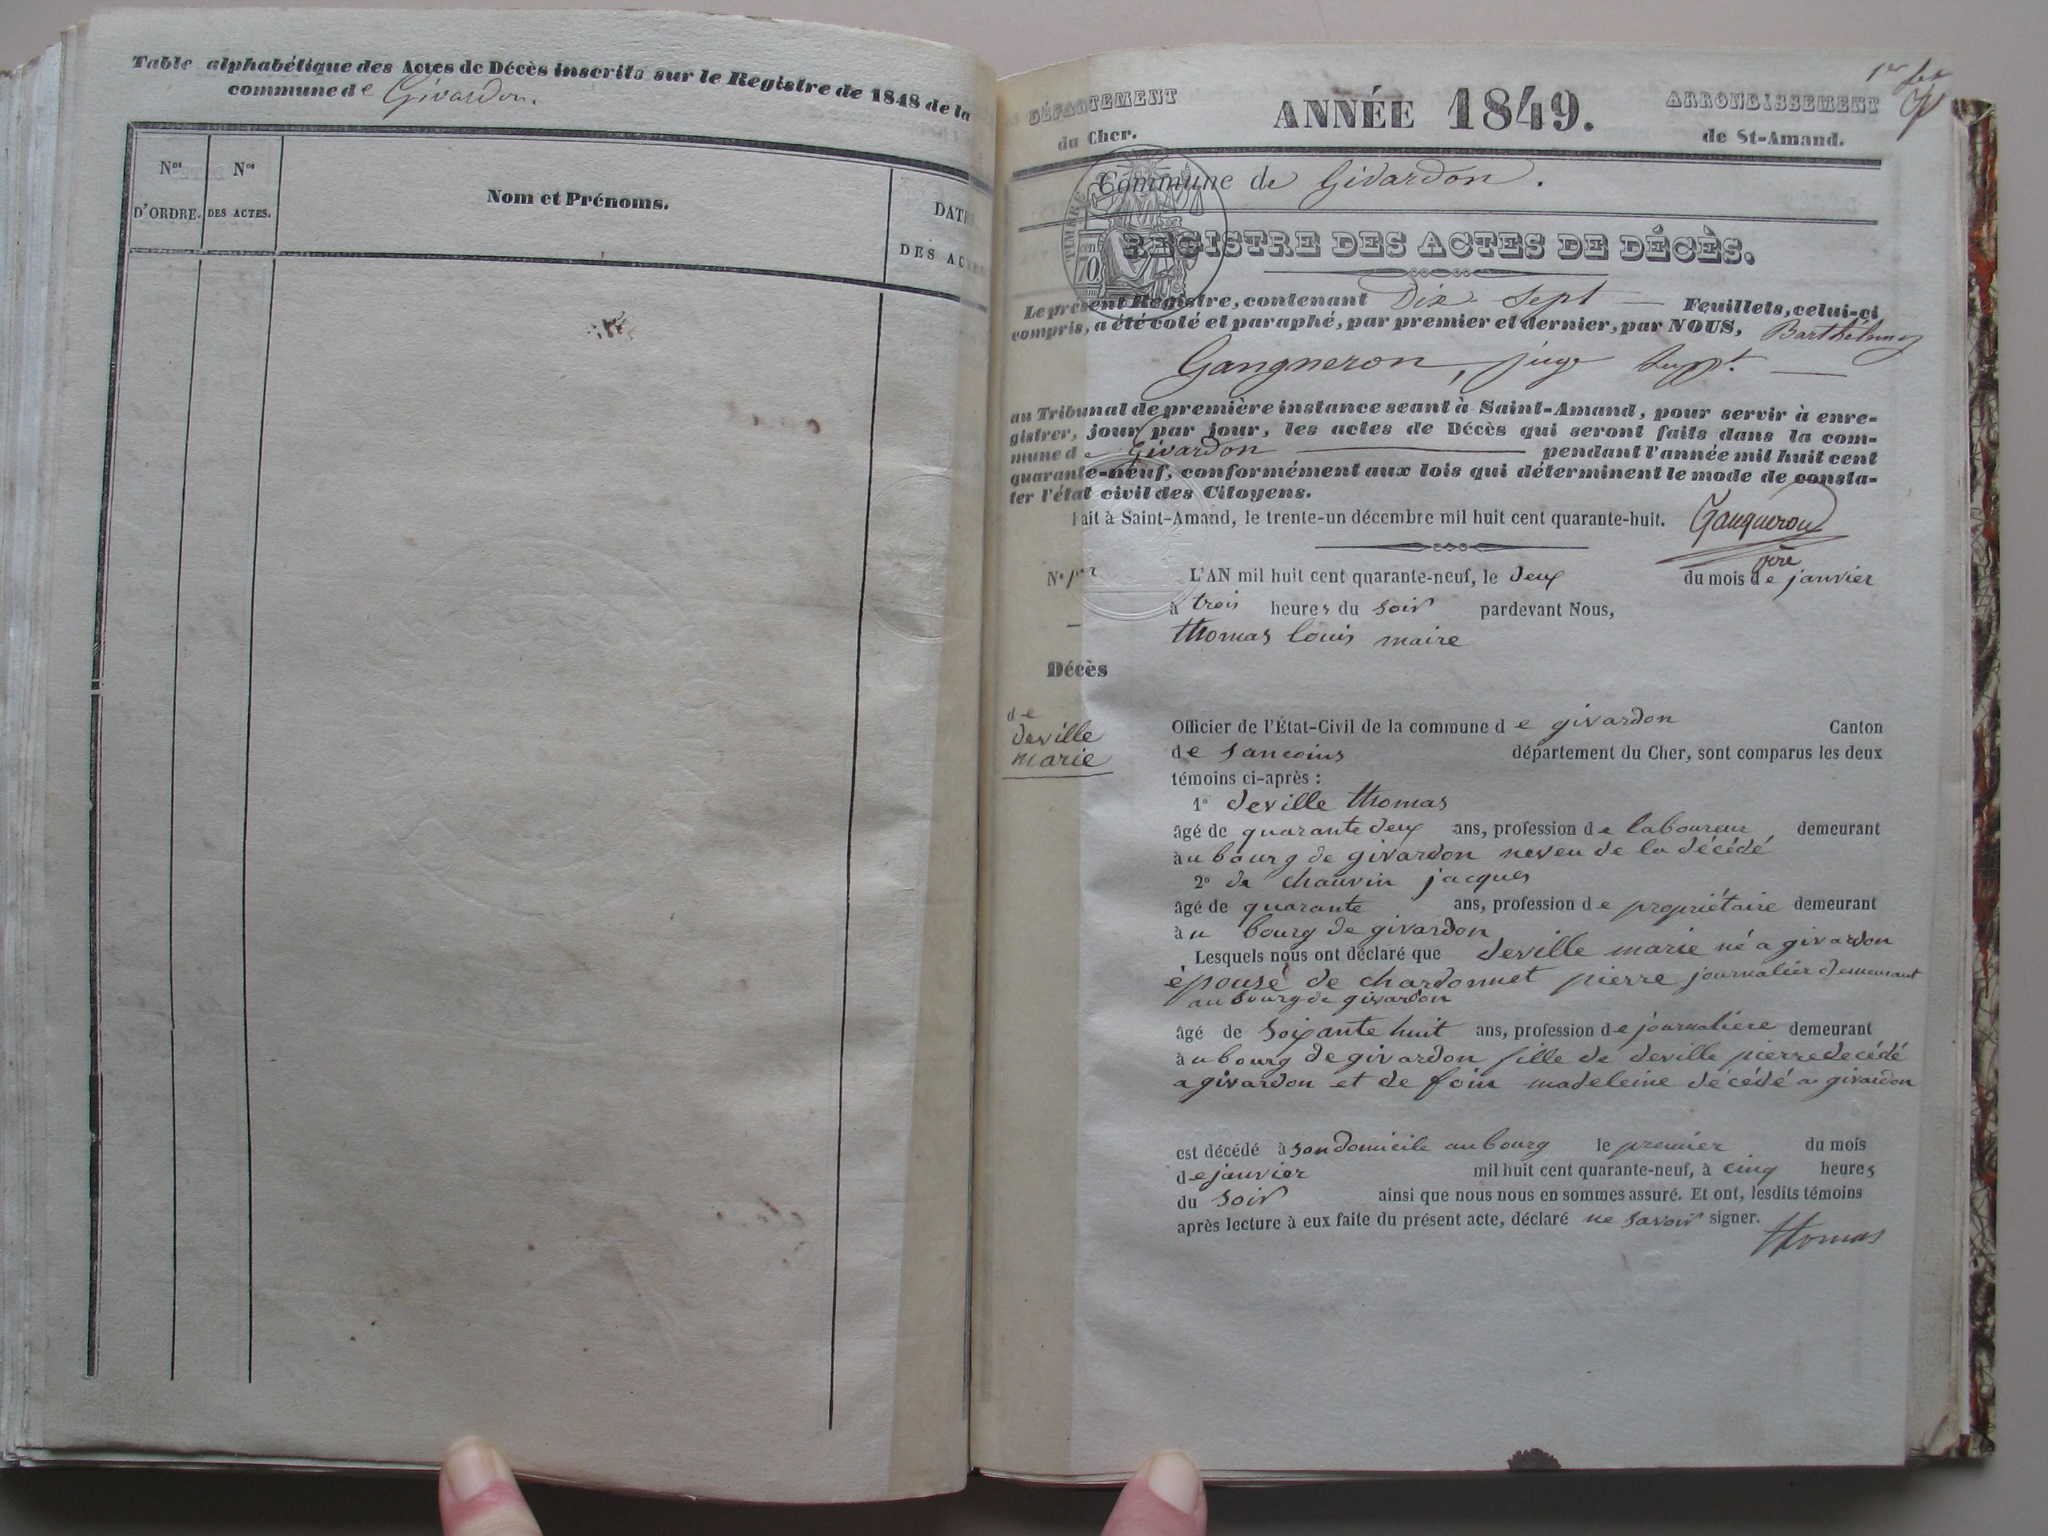 Table alphabétique des Actes de Décès inscrits sur le Registre de 1848 de la
commune de Givardon.
Nos D'ORDRE.
Nos DES ACTES.
Nom et Prénoms.
DATE
DES ACTES
1er
DÉPARTEMENT
du Cher.
ANNÉE 1849.
ARRONDISSEMENT
de St-Amand.
Commune de Givardon.
TIMBRE
70
REGISTRE DES ACTES DE DÉCÈS.
Le présent Registre, contenant Dix Sept Feuillets, celui-ci
compris, a été coté et paraphé, par premier et dernier, par NOUS, Barthélemy
Gangneron, juge suppt.
au Tribunal de première instance seant à Saint-Amand, pour servir à enre-
gistrer, jour par jour, les actes de Décès qui seront faits dans la com-
mune de Givardon pendant l'année mil huit cent
quarante-neuf, conformément aux lois qui déterminent le mode de consta-
ter l'état civil des Citoyens.
Fait à Saint-Amand, le trente-un décembre mil huit cent quarante-huit. Gangneron
père
No 1er
L'AN mil huit cent quarante-neuf, le deux du mois de janvier
à trois heures du soir pardevant Nous,
thomas louis maire
Décès
de
deville
marie
Officier de l'État-Civil de la commune de givardon Canton
de sancoins département du Cher, sont comparus les deux
témoins ci-après :
1° deville thomas
âgé de quarante deux ans, profession de laboureur demeurant
au bourg de givardon neveu de la décédé
2° de chauvin jacques
âgé de quarante ans, profession de propriétaire demeurant
au bourg de givardon
Lesquels nous ont déclaré que deville marie né a givardon
épousé de chardonnet pierre journalier demeurant
au bourg de givardon
âgé de soixante huit ans, profession de journaliere demeurant
au bourg de givardon fille de deville pierre decédé
a givardon et de foin madeleine décédé a givardon
est décédé à son domicile au bourg le premier du mois
de janvier mil huit cent quarante-neuf, à cinq heures
du soir ainsi que nous nous en sommes assuré. Et ont, lesdits témoins
après lecture à eux faite du présent acte, déclaré ne savoir signer.
thomas